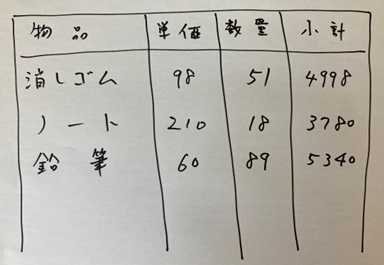 物品 単価 数量 小計
消しゴム 98 51 4998
ノート 210 18 3780
鉛筆 60 89 5340